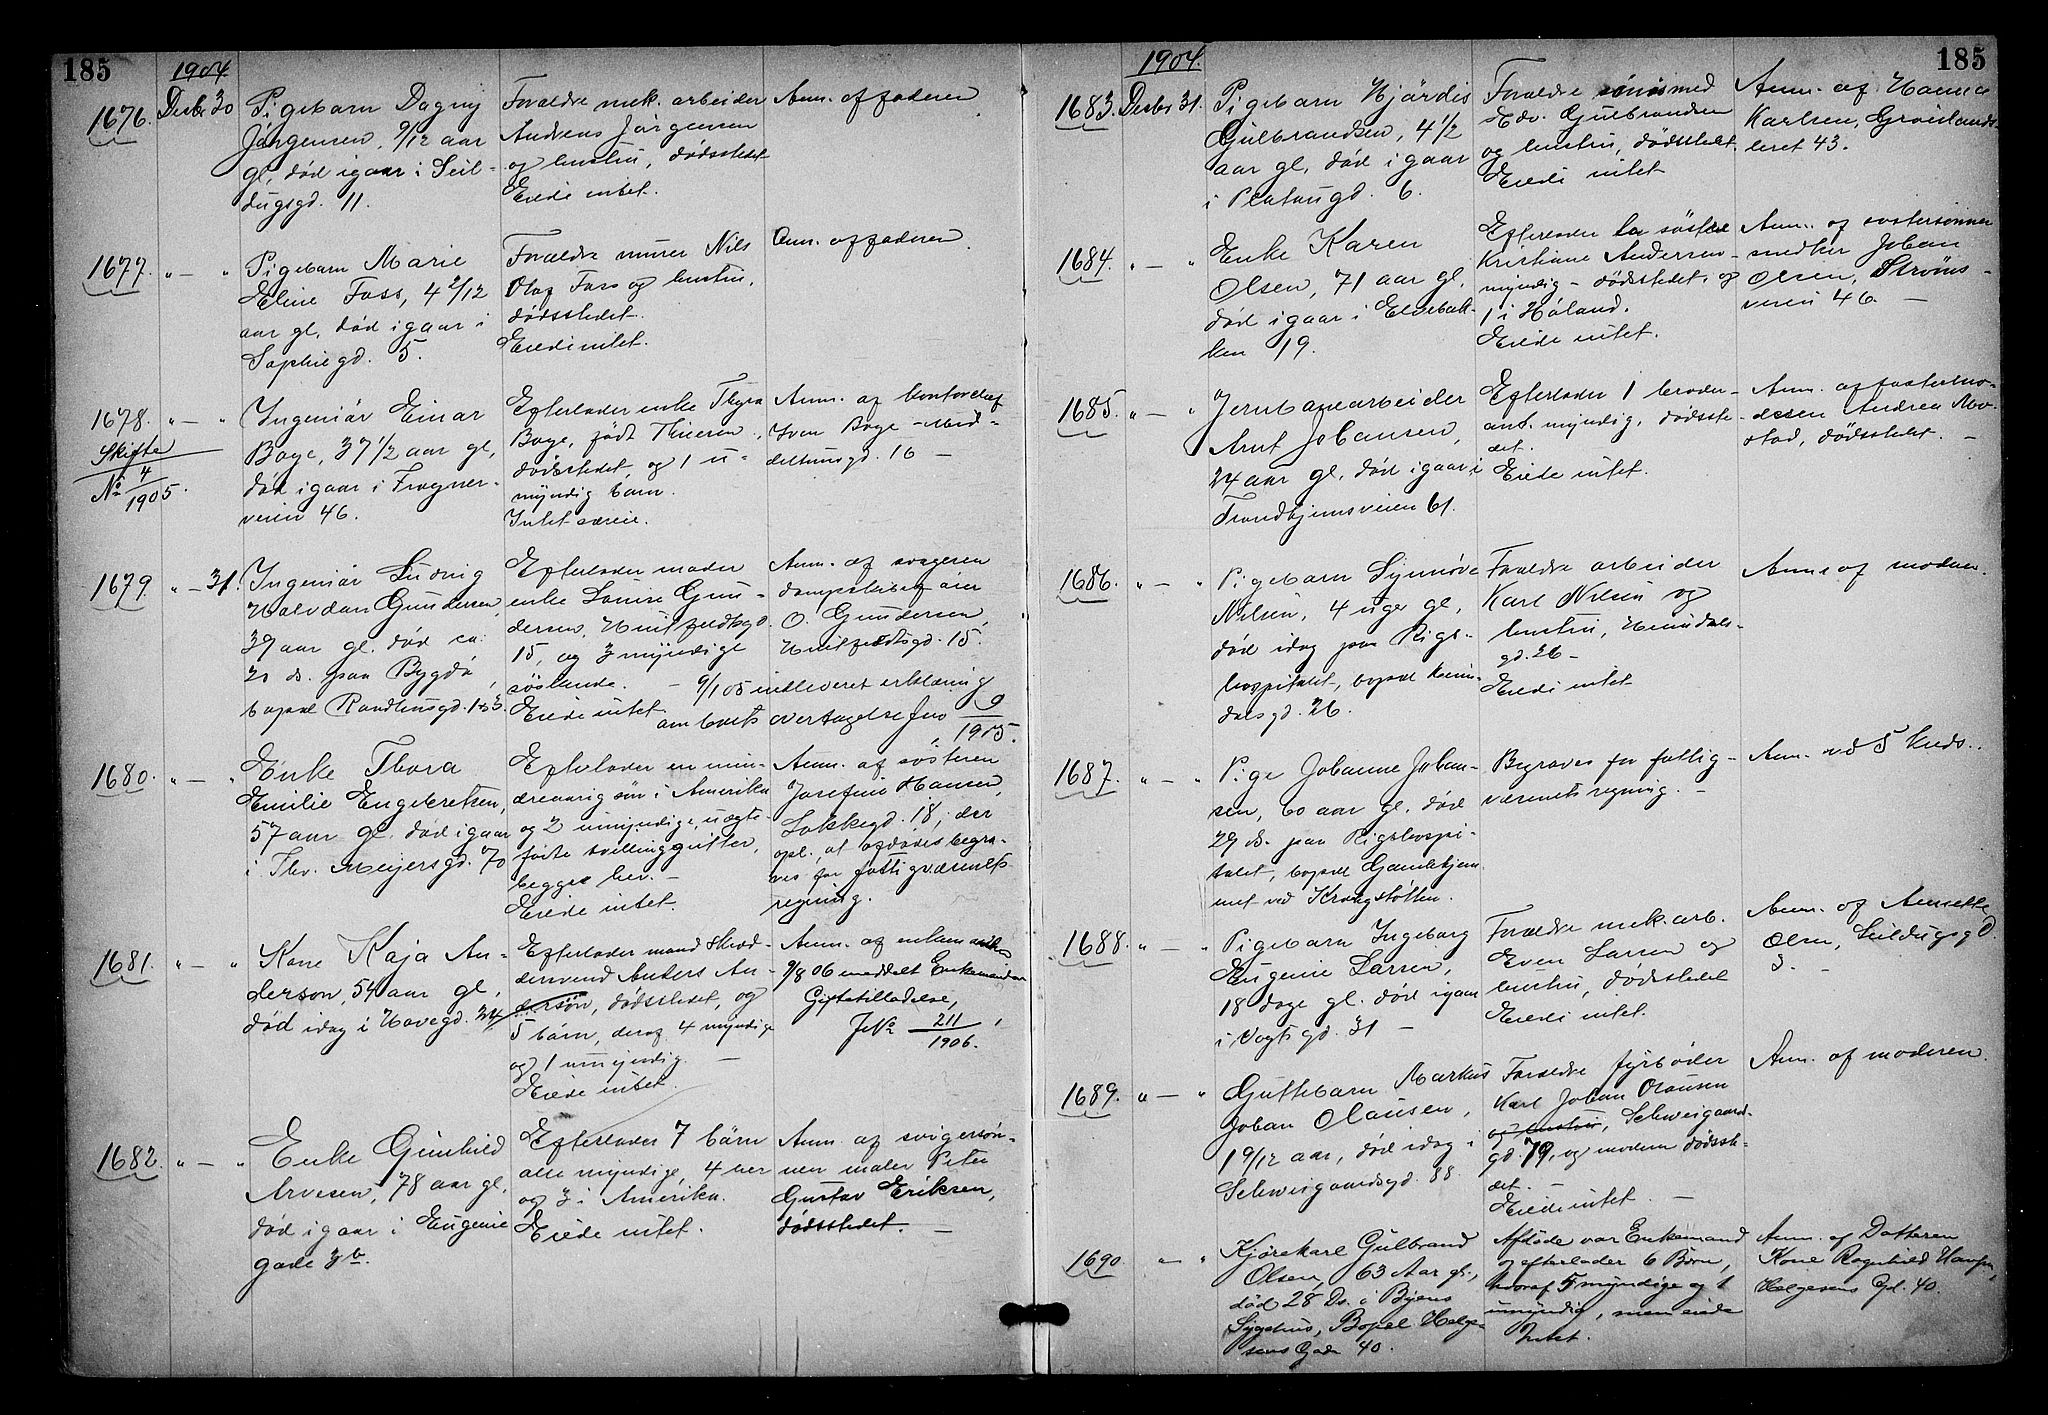 185
1904
1676. Desbr 30
Pigebarn Dagny
Jørgensen, 9/12 aar
gl, død igaar i Seil-
dugsgd. 11.
Forældre mek. arbeider
Andreas Jørgensen
og hustru, dødsstedet
Eiede intet.
Anm. af faderen
1677. " — "
Pigebarn Marie
Eline Foss, 4 2/12
aar gl, død igaar i
Sophiegd. 5.
Forældre murer Nils
Olaf Foss og hustru,
dødsstedet.
Eiede intet.
Anm. af faderen.
1678. " — "
Skifte
No 4/1905.
Ingeniør Einar
Boye, 37 1/2 aar gl,
død igaar i Frogner-
veien 46.
Efterlader enke Thyra
Boye, født
dødsstedet, og 1 u-
myndig barn.
Intet særeie.
Anm. af kontorchef
Boye - Mid-
deltunsgd. 16 —
1679 " — 31.
Ingeniør Ludvig
Halvdan Gundersen,
39 aar gl. død ca:
20 ds. paa Bygdø,
bopæl
Efterlader moder
enke Louise Gun-
dersen, Huitfeldtsgd.
15, og 3 myndige
søskende.
Eiede intet
Anm. af svogeren
dampskibsfører
O. Gundersen,
Huitfeldtsgd. 15.
— 9/1 05 indleveret erklæring
om boets overtagelse Jno 9/1905.
1680. " — "
Enke Thora
Emilie Engebretsen,
57 aar gl. død igaar
i Thv. Meyersgd. 70
Efterlader en min-
dreaarig søn i Amerika
og 2 umyndige, uægte-
fødte tvillinggutter,
begge her. —
Eiede intet.
Anm. af søsteren
Josefine Hansen,
Løkkegd. 18, der
opl., at afdøde begra-
ves for fattigvæsenets
regning.
1681. " — "
Kone Kaja An-
derson, 54 aar gl,
død idag i Hovegd. 24
Efterlader mand skræd-
dersvend Anders An-
derson, dødsstedet, og
5 børn, deraf 4 myndige
og 1 umyndig. —
Eiede intet.
Anm. af enkemanden
9/8 06 meddelt Enkemanden
Giftetilladelse,
JNo 211/1906.
1682. " — "
Enke Gunhild
Arvesen, 78 aar gl,
død igaar i Eugenie
gade 3b.
Efterlader 7 børn
alle myndige, 4 her
og 3 i Amerika.
Eiede intet.
Anm. af svigersøn-
nen maler Peter
Gustav Eriksen,
dødsstedet. —
185
1904.
1683. Desbr 31.
Pigebarn Hjørdis
Gulbrandsen, 4 1/2
aar gl, død igaar
i Platousgd. 6.
Forældre smed
Edv. Gulbrandsen
og hustru, dødsstedet.
Eiede intet
Anm. af Hanna
Karlsen, Grønlands-
leret 43.
1684. " — "
Enke Karen
Olsen, 71 aar gl.
død igaar i Enebak-
ken 19.
Efterlader søster
Kristiane Andersen
myndig - dødsstedet, og
1 i Høland.
Eiede intet.
Anm. af søstersønnen
Johan
Olsen, Strøms-
veien 46. —
1685. " — "
Jernbanearbeider
Arnt Johansen,
24 aar gl, død igaar i
Trondhjemsveien 61.
Efterlader 1 broder-
ant. myndig, dødsste-
det.
Eiede intet.
Anm. af fostermo-
deren Andrea
dødsstedet. —
1686. " — "
Pigebarn Synnøve
Nilsen, 4 uger gl,
død idag paa Rigs-
hospitalet, bopæl Heim-
dalsgd. 26.
Forældre arbeider
Karl Nilsen og
hustru, Heimdals-
gd. 26 —
Eiede intet
Anm. af moderen.
1687. " — "
Pige Johanne Johan-
sen, 60 aar gl. død
29 ds. paa Rigshospi-
talet, bopæl Gamlehjem-
met ved Krohgstøtten.
Begraves for fattig-
væsenets regning. —
Anm. ved
1688. " — "
Pigebarn Ingeborg
Eugenie Larsen,
18 dage gl. død igaar
i Vogtsgd. 31 —
Forældre mek. arb.
Even Larsen og
hustru, dødsstedet
Eiede intet.
Anm. af Annette
Olsen, Seildugsgd.
3. —
1689. " — "
Guttebarn Markus
Johan Olausen,
1 9/12 aar, død idag i
Schweigaardsgd. 88
Forældre fyrbøder
Karl Johan Olausen
og hustru, Schweigaards-
gd. 79, og moderen dødsste-
det. —
Eiede intet. —
Anm. af moderen.
1690 " — "
Kjørekarl Gulbrand
Olsen, 63 Aar gl.,
død 28 Ds. i Byens
Sygehus, Bopæl Helge-
sens Gade 40.
Afdøde var Enkemand
og efterlader 6 Børn,
hvoraf 5 myndige og 1
umyndig, men eiede
Intet.
Anm. af Datteren
Kone Ragnhild Hansen,
Helgesens Gd. 40.